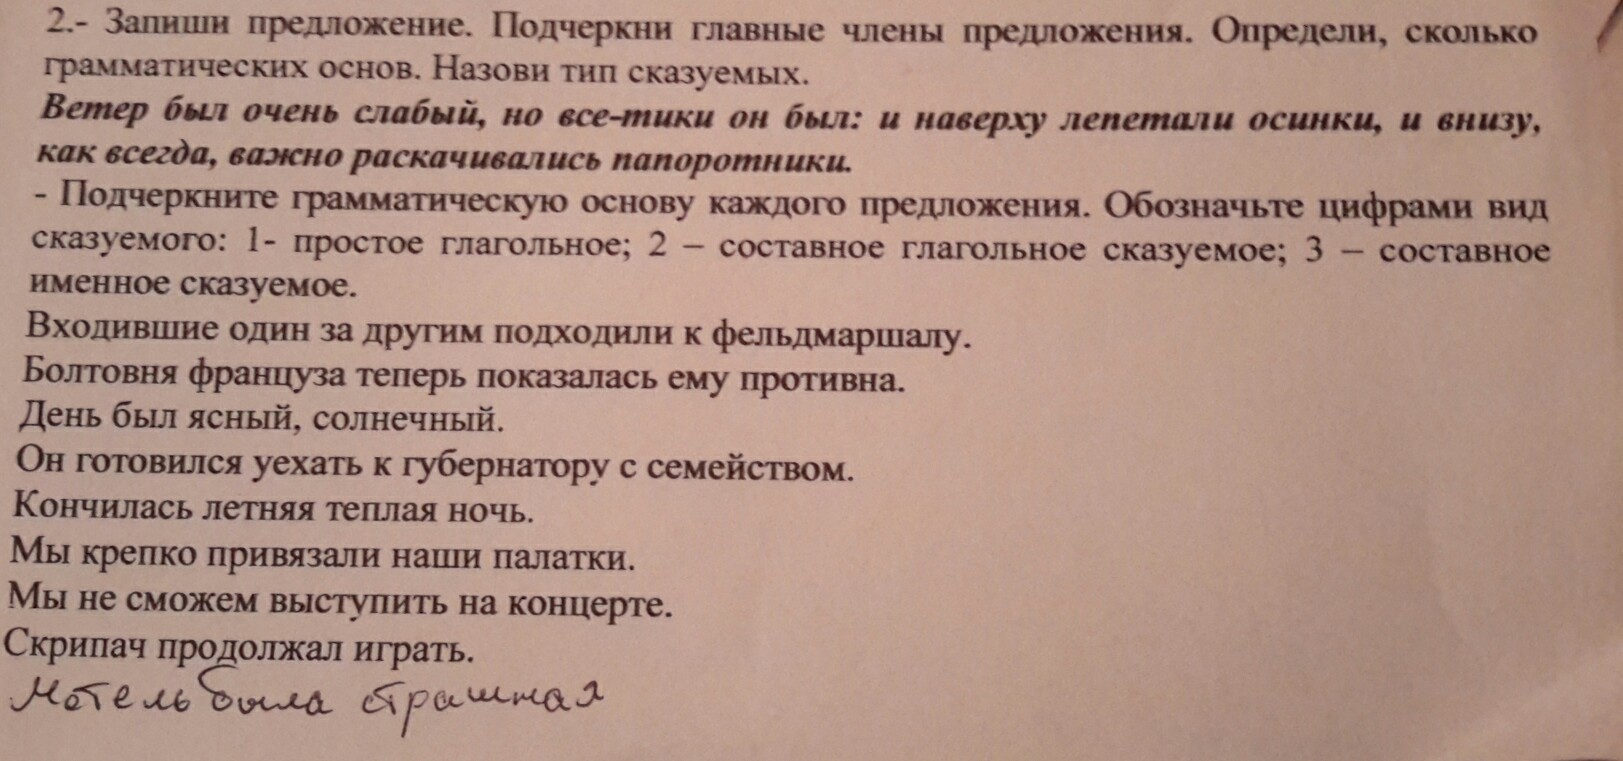 2.- Запиши предложение. Подчеркни главные члены предложения. Определи, сколько
грамматических основ. Назови тип сказуемых.
Ветер был очень слабый, но все-тики он был: и наверху лепетали осинки, и внизу,
как всегда, важно раскачивались папоротники.
- Подчеркните грамматическую основу каждого предложения. Обозначьте цифрами вид
сказуемого: 1- простое глагольное; 2 – составное глагольное сказуемое; 3 – составное
именное сказуемое.
Входившие один за другим подходили к фельдмаршалу.
Болтовня француза теперь показалась ему противна.
День был ясный, солнечный.
Он готовился уехать к губернатору с семейством.
Кончилась летняя теплая ночь.
Мы крепко привязали наши палатки.
Мы не сможем выступить на концерте.
Скрипач продолжал играть.
Метель была страшная